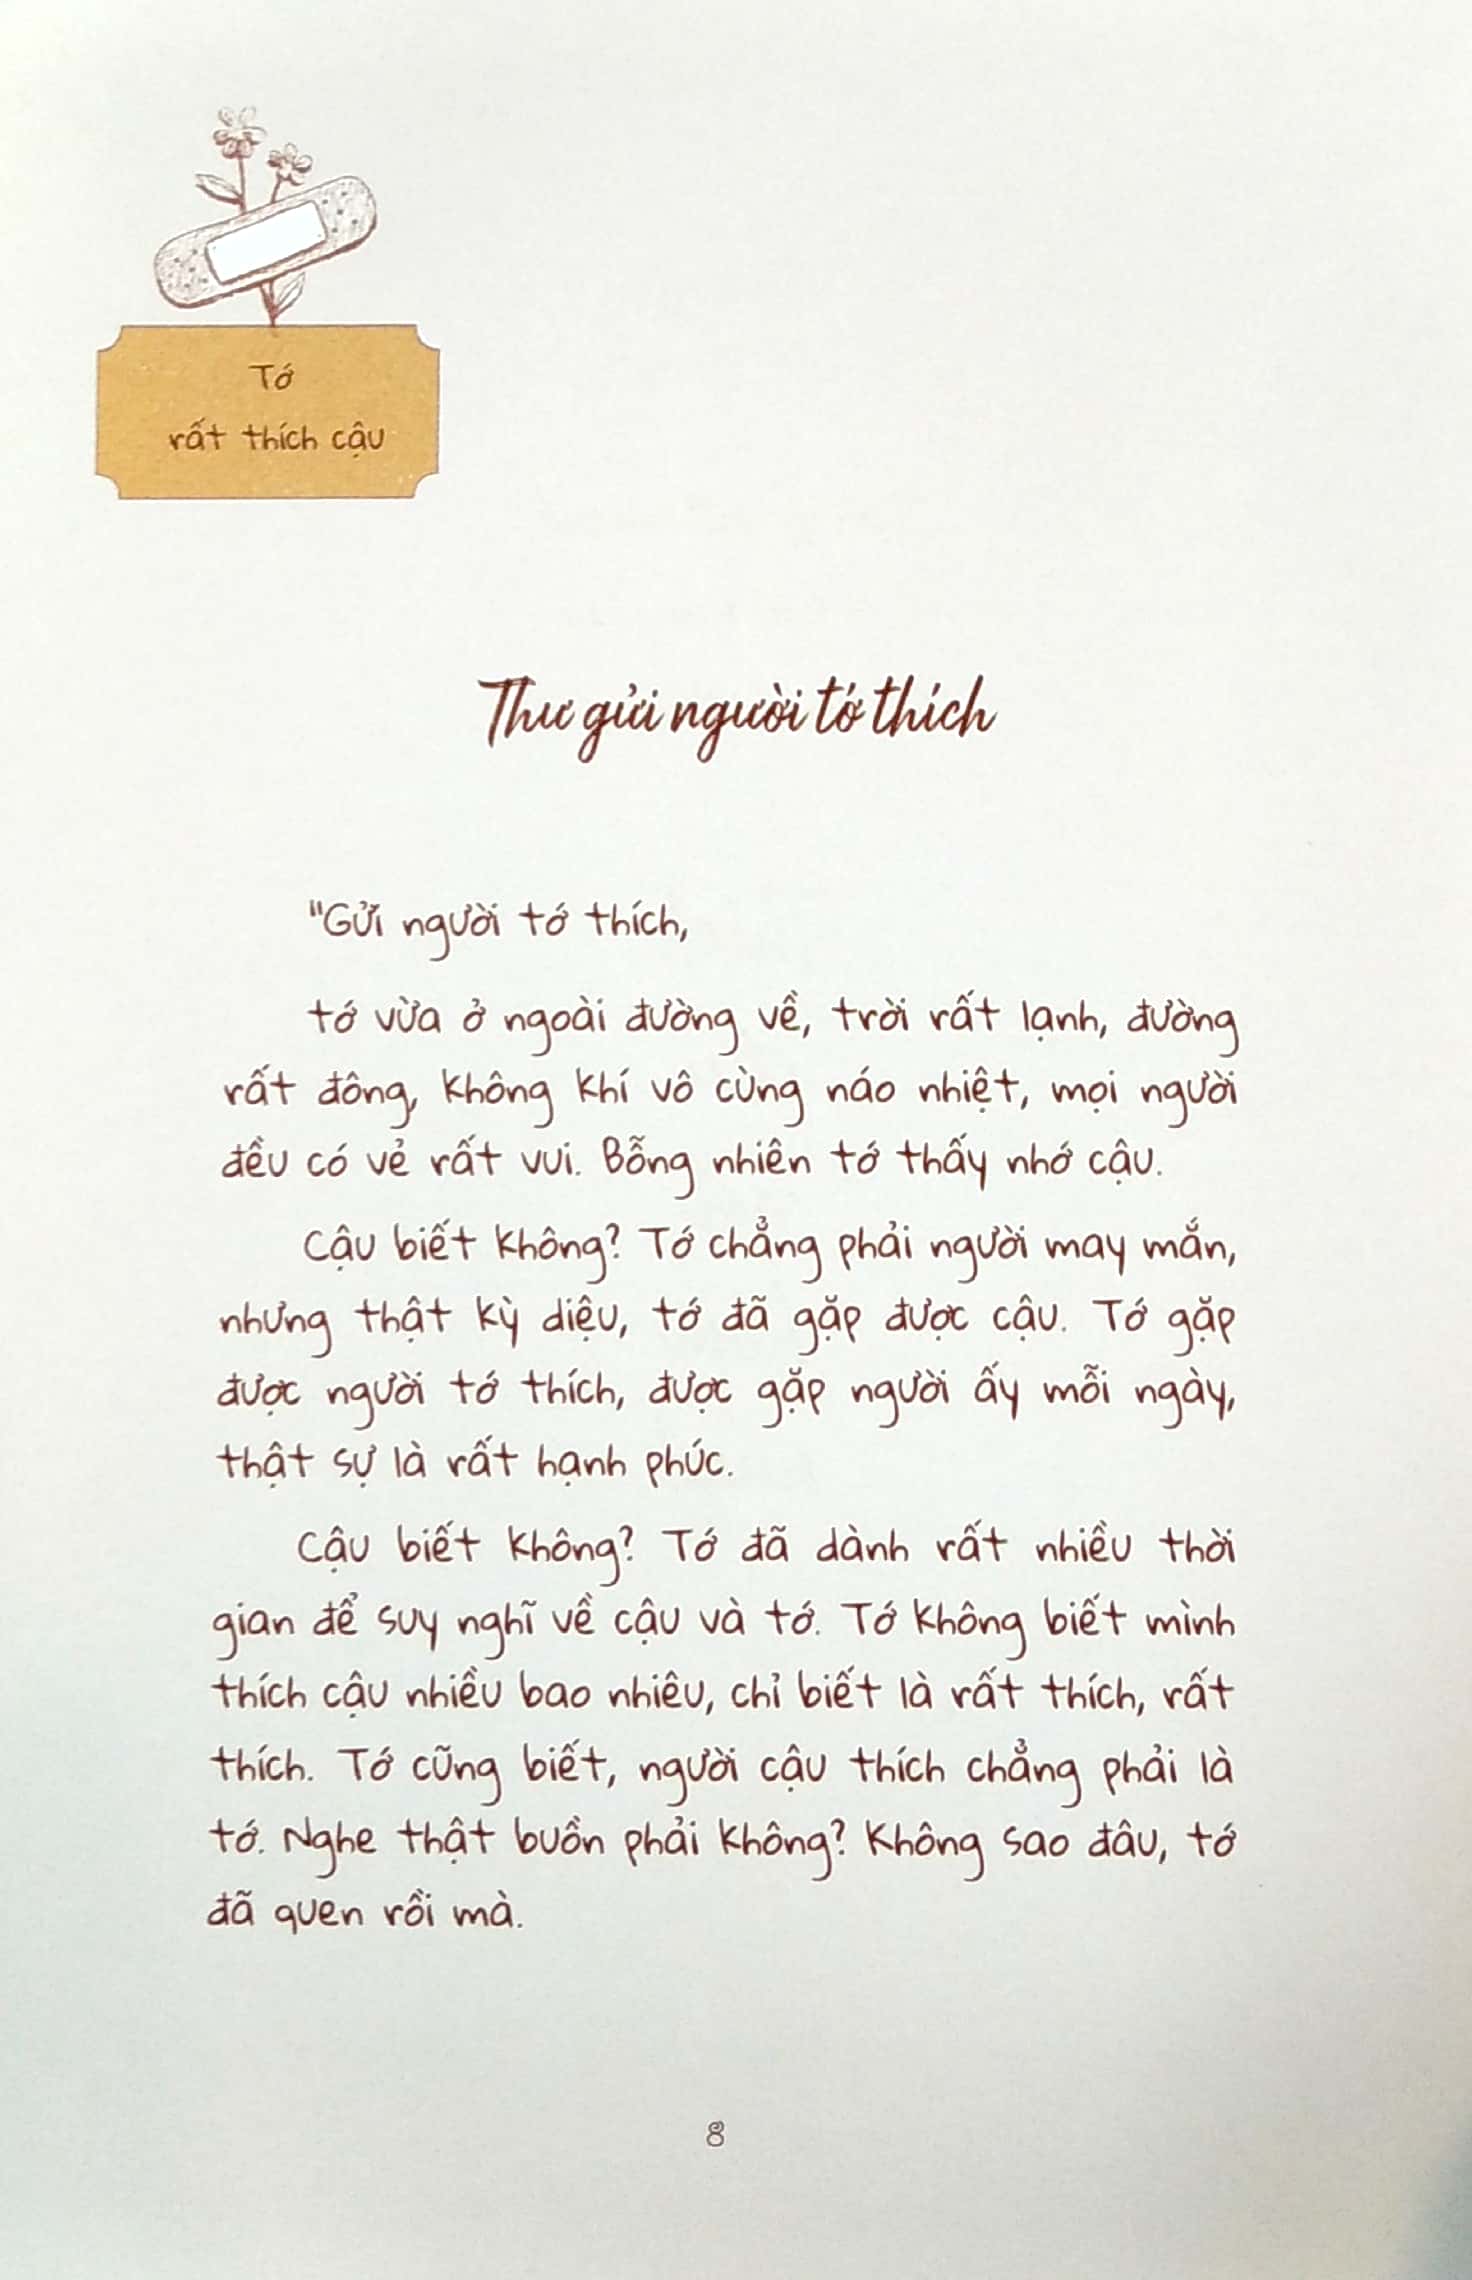 Tớ
rất thích cậu
Thư gửi người tớ thích
"Gửi người tớ thích,
tớ vừa ở ngoài đường về, trời rất lạnh, đường
rất đông, không khí vô cùng náo nhiệt, mọi người
đều có vẻ rất vui. Bỗng nhiên tớ thấy nhớ cậu.
Cậu biết không? Tớ chẳng phải người may mắn,
nhưng thật kỳ diệu, tớ đã gặp được cậu. Tớ gặp
được người tớ thích, được gặp người ấy mỗi ngày,
thật sự là rất hạnh phúc.
Cậu biết không? Tớ đã dành rất nhiều thời
gian để suy nghĩ về cậu và tớ. Tớ không biết mình
thích cậu nhiều bao nhiêu, chỉ biết là rất thích, rất
thích. Tớ cũng biết, người cậu thích chẳng phải là
tớ. Nghe thật buồn phải không? Không sao đâu, tớ
đã quen rồi mà.
8